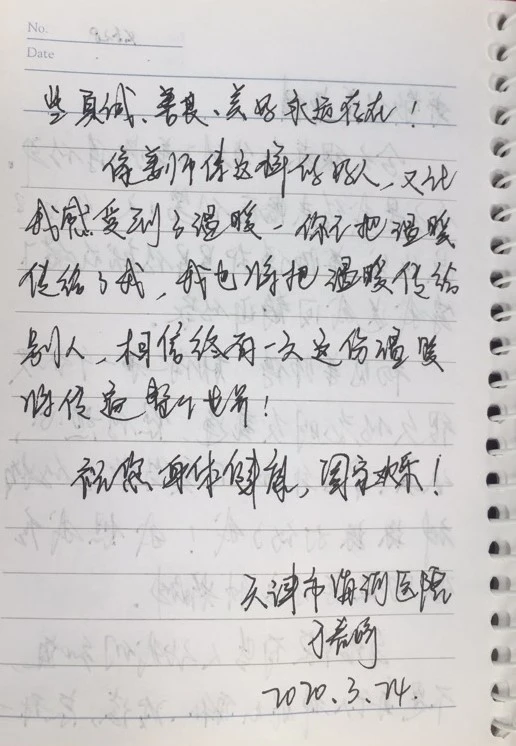 No.
Date
些真诚、善良、美好永远存在!
像姜师傅这样的好人,又让
我感受到了温暖-你们把温暖
传给了我,我也将把温暖传给
别人,相信终有一天这份温暖
将传遍整个世界!
祝您身体健康,阖家欢乐!
天津市海河医院
于
2020.3.24.